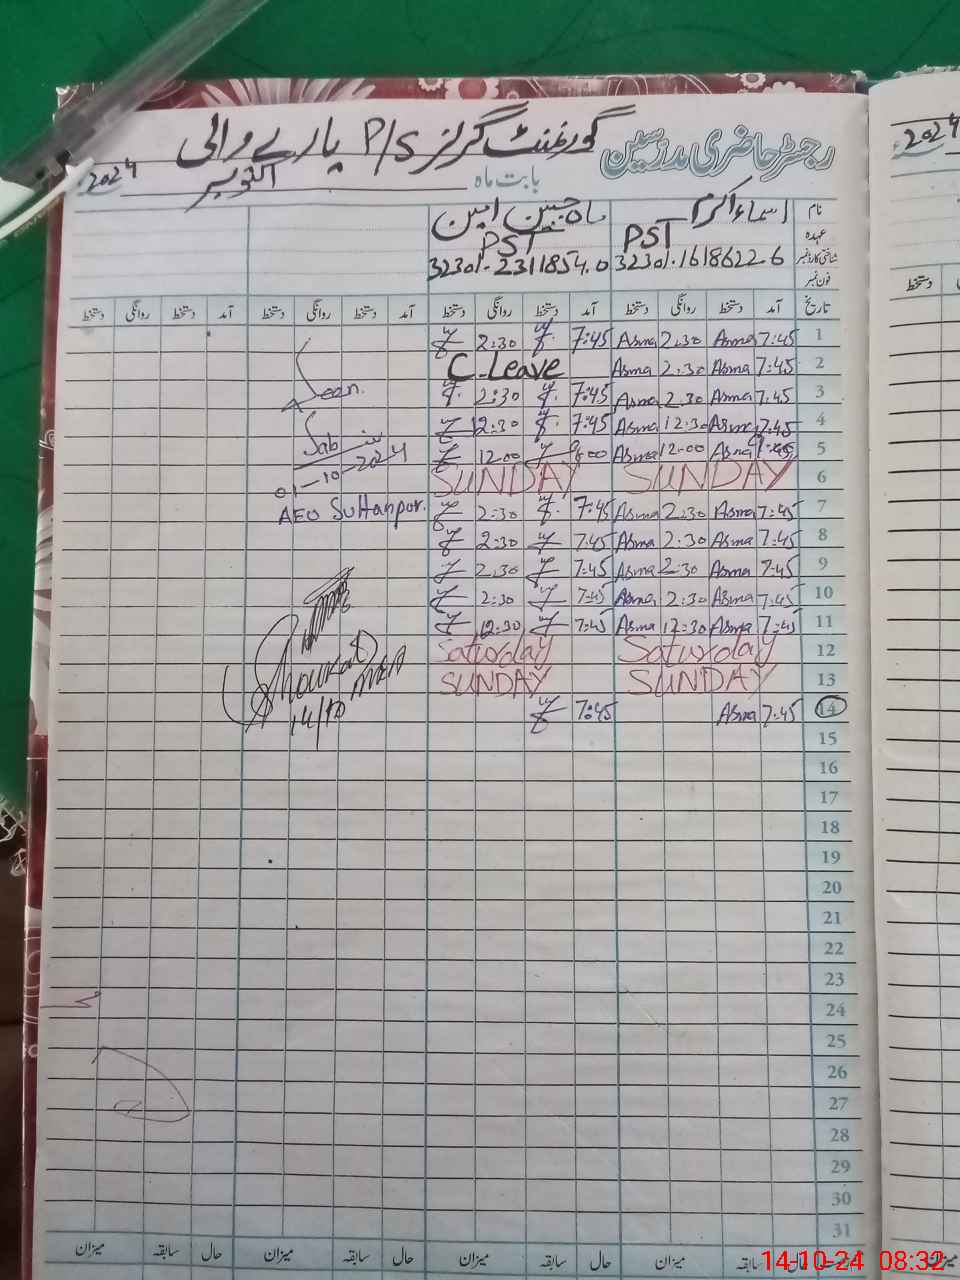 رجسٹر حاضری مدرسین گورنمنٹ گرلز P/S پارے والی
بابت ماہ اکتوبر 2024
نام اسماء اکرم ماہ جبین امین
عہدہ PST PST
شناختی کارڈ نمبر 32301-1618622-6 32301-2311854-0
فون نمبر
تاریخ آمد دستخط روانگی دستخط آمد دستخط روانگی دستخط آمد دستخط روانگی دستخط آمد دستخط روانگی دستخط
1 7:45 Asma 2:30 Asma 7:45 2:30
2 7:45 Asma 2:30 Asma C-Leave
3 7:45 Asma 2:30 Asma 7:45 2:30
4 7:45 Asma 12:30 Asma 7:45 12:30
5 Asma 12:00 Asma 12:00
6 SUNDAY SUNDAY
7 7:45 Asma 2:30 Asma 7:45 2:30
8 7:45 Asma 2:30 Asma 7:45 2:30
9 7:45 Asma 2:30 Asma 7:45 2:30
10 7:45 Asma 2:30 Asma 7:45 2:30
11 7:45 Asma 12:30 Asma 7:45 12:30
12 Saturday Saturday
13 SUNDAY SUNDAY
14 7:45 Asma 7:45
15
16
17
18
19
20
21
22
23
24
25
26
27
28
29
30
31
Seen
01-10-2024
AEO Sultanpur.
Shoukat
14/10
حال سابقہ میزان حال سابقہ میزان حال سابقہ میزان
2024
دستخط
میزان
14-10-24 08:32